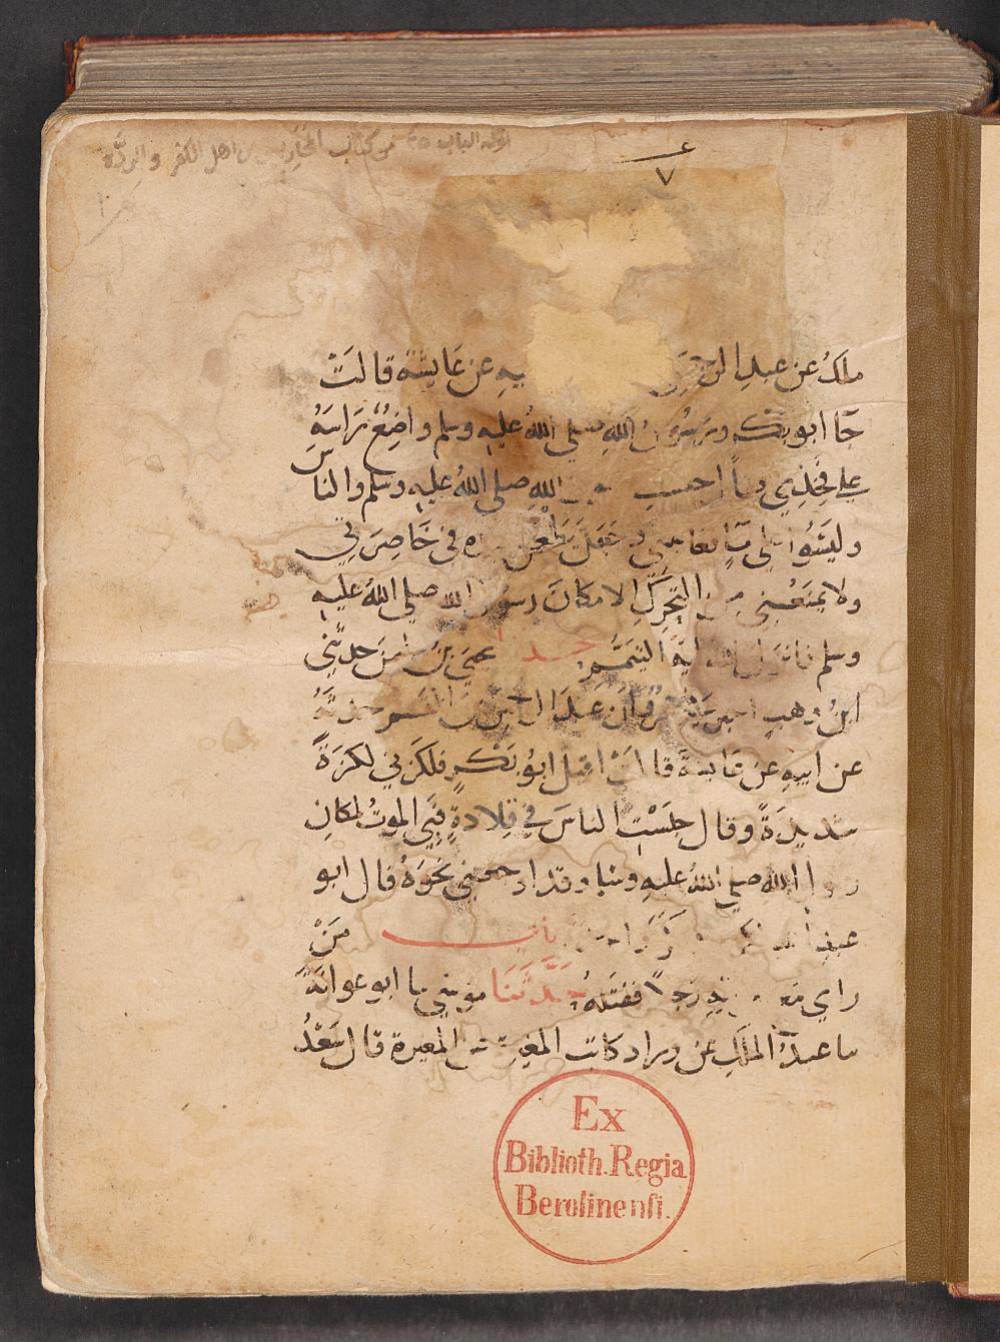 اوله الباب من كتاب المحاربين من اهل الكفر والردة
٤
٧
ملك عن عبد الرحمن يه عن عَايشة قالَتْ
جَا ابو بكر ورسُول الله صلى اللهُ عليه وسلم واضِعٌ رَاسَهُ
على فَخِذِي وقال حبست الله صلى اللهُ عليه وسلم والناسَ
وليسُوا على مَا فعاتبني وجَعَلَ يَطْعُن ه فى خَاصِرَتي
ولا يمنَعُني من التحركِ الا مكَان رسول الله صلى اللهُ عليه
وسلم فانزل الله اية التيمّم حدثنا يحيى بن سليمن حدثَني
ابنُ وهب اخبرني عمرو ان عبدَ الرحمن بن القسم حدثهُ
عن ابيهِ عن عايشةَ قالت اقبل ابُو بَكْرٍ فلكَزَني لكزَةً
شديدَةً وقال حبسْتِ الناسَ في قِلادةٍ فبي الموتُ لمكان
رسول الله صلى اللهُ عليه وسلم وقد اوجعني نحوَهُ قال ابو
عبد الله لكز ووكز واحد باب مَنْ
راى مع رجلاً فقتله حَدَّثَنَا موسى نا ابو عوانةَ
نا عبدُ الملك عن وراد كاتب المغيرة عن المغيرة قال سَعْدُ
Ex
Biblioth. Regia
Berolinensi.